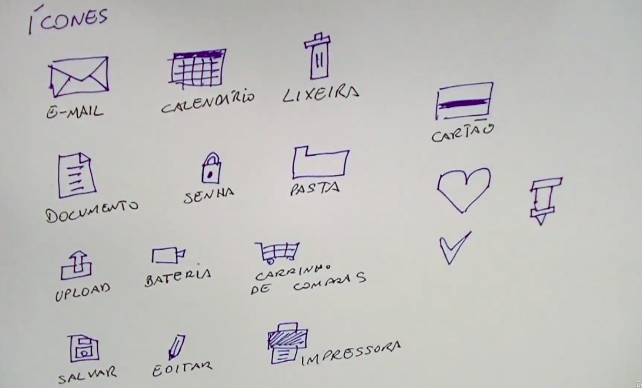 ÍCONES
E-MAIL
CALENDÁRIO
LIXEIRA
CARTÃO
DOCUMENTO
SENHA
PASTA
UPLOAD
BATERIA
CARRINHO
DE COMPRAS
SALVAR
EDITAR
IMPRESSORA